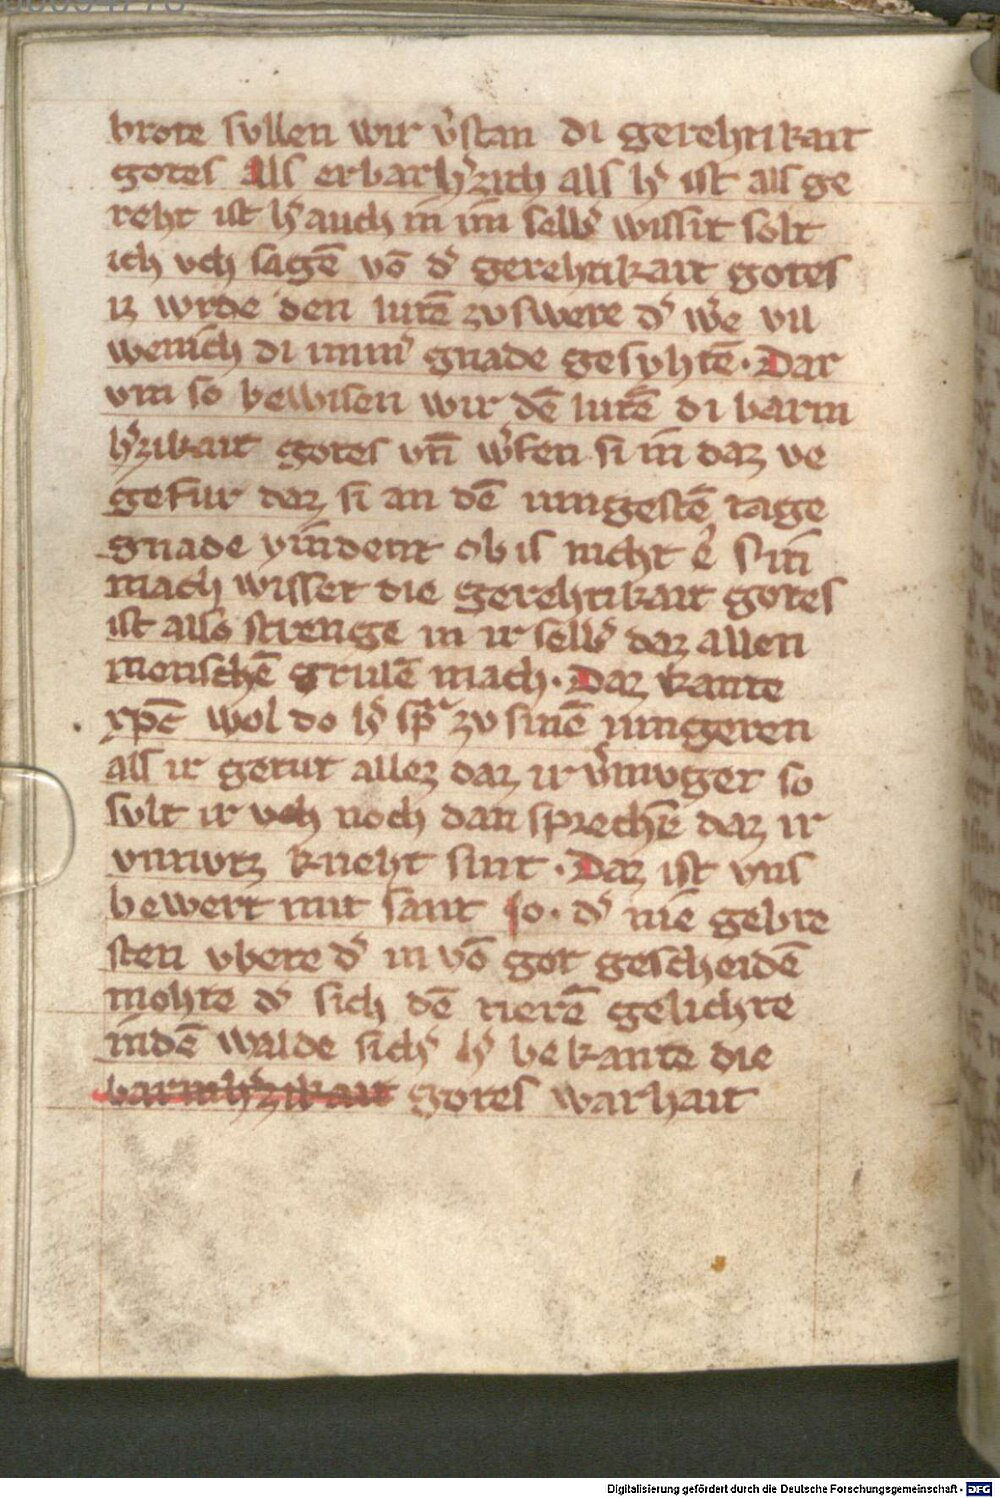 brote sullen wir v͛stan di gerehtikait
gotes Als erbarh͛zich als h͛ ist als ge
reht ist h͛ auch in im selb͛ wissit solt
ich vch sagē vō d͛ gerehtikait gotes
iz wrde den lutē zv swere d͛ w͛e vil
wenich di gnade gesvhtē · Dar
vm so bewisen wir dē lutē di barm
h͛zikait gotes vn̄ w͛fen si in daz ve
gefiur daz si an dē iungestē tage
gnade vindent ob is nicht e͛ sin
mach wisset die gerehtikait gotes
ist also strenge in ir selb͛ daz allen
menschē grulē mach · Daz kante
xpc̄ wol do h͛ spͣ zv sinē iungeren
als ir getut allez daz ir v͛mvget so
sult ir vch noch dan sprechē daz ir
vnnutz kneht sint · Daz ist vns
bewert mit sant Jo · d͛ nie gebre
sten vbete d͛ in vō got gescheidē
mohte d͛ sich dē tierē gelichte
in dē walde sich͛ h͛ bekante die
barmh͛zikait gotes warhait
Digitalisierung gefördert durch die Deutsche Forschungsgemeinschaft - DFG